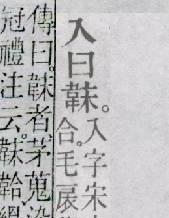 入曰韎。
入字宋
合。毛扆
傳曰。韎者茅蒐染
冠禮注云。韎韐縕